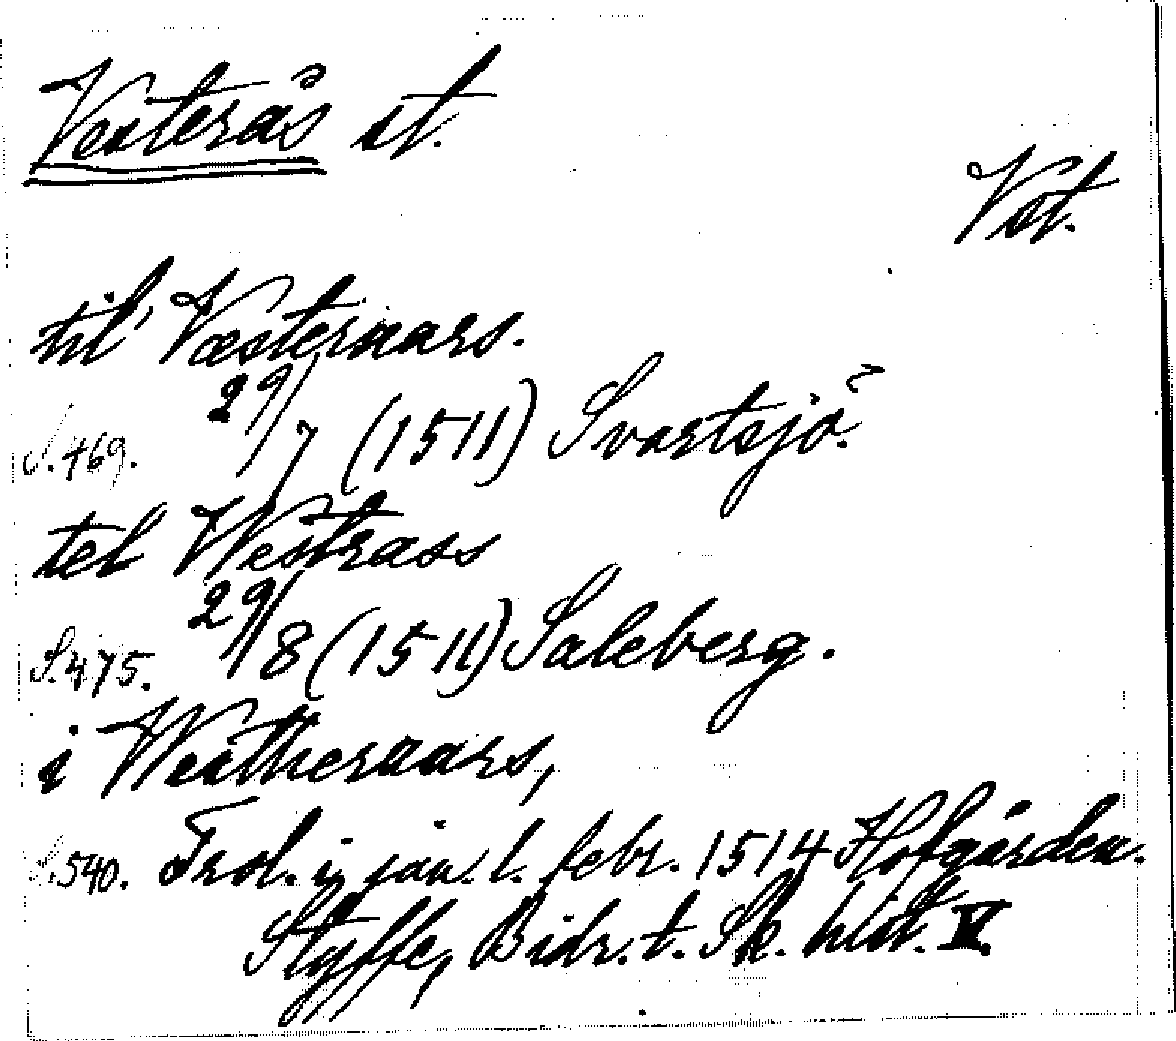 Vesterås st.
Vst.
til Væsteraars.
S. 469. 29/7 (1511) Svartsjö.
tel Westrass
S. 475. 29/8 (1511) Saleberg.
i Westheraars,
S. 540. Trol. i jan. l. febr. 1514 Hofgården.
Styffe, Bidr. t. Sk. hist. V.